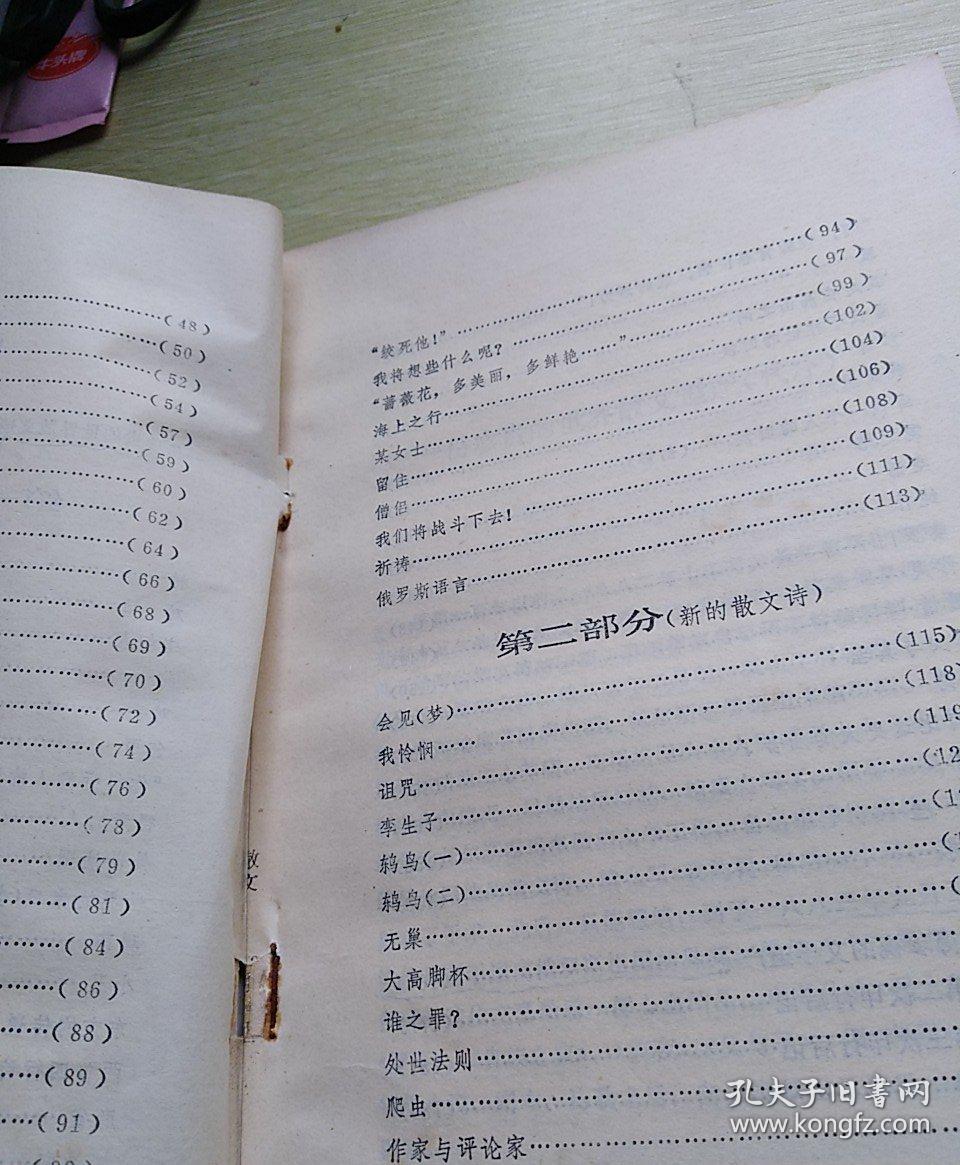 牛头牌
……(48)
……(50)
……(52)
……(54)
……(57)
……(59)
……(60)
……(62)
……(64)
……(66)
……(68)
……(69)
……(70)
……(72)
……(74)
……(76)
……(78)
……(79)
……(81)
……(84)
……(86)
……(88)
……(89)
……(91)
散文
“绞死他!”……(94)
我将想些什么呢?……(97)
“蔷薇花,多美丽,多鲜艳……”……(99)
海上之行……(102)
某女士……(104)
留住……(106)
僧侣……(108)
我们将战斗下去!……(109)
祈祷……(111)
俄罗斯语言……(113)
第二部分(新的散文诗)
会见(梦)……(115)
我怜悯…… ……(118)
诅咒……(119
孪生子……(12
鸫鸟(一)……(1
鸫鸟(二)……(1
无巢……(
大高脚杯……
谁之罪?……
处世法则……
爬虫……
作家与评论家……
孔夫子旧书网
www.kongfz.com